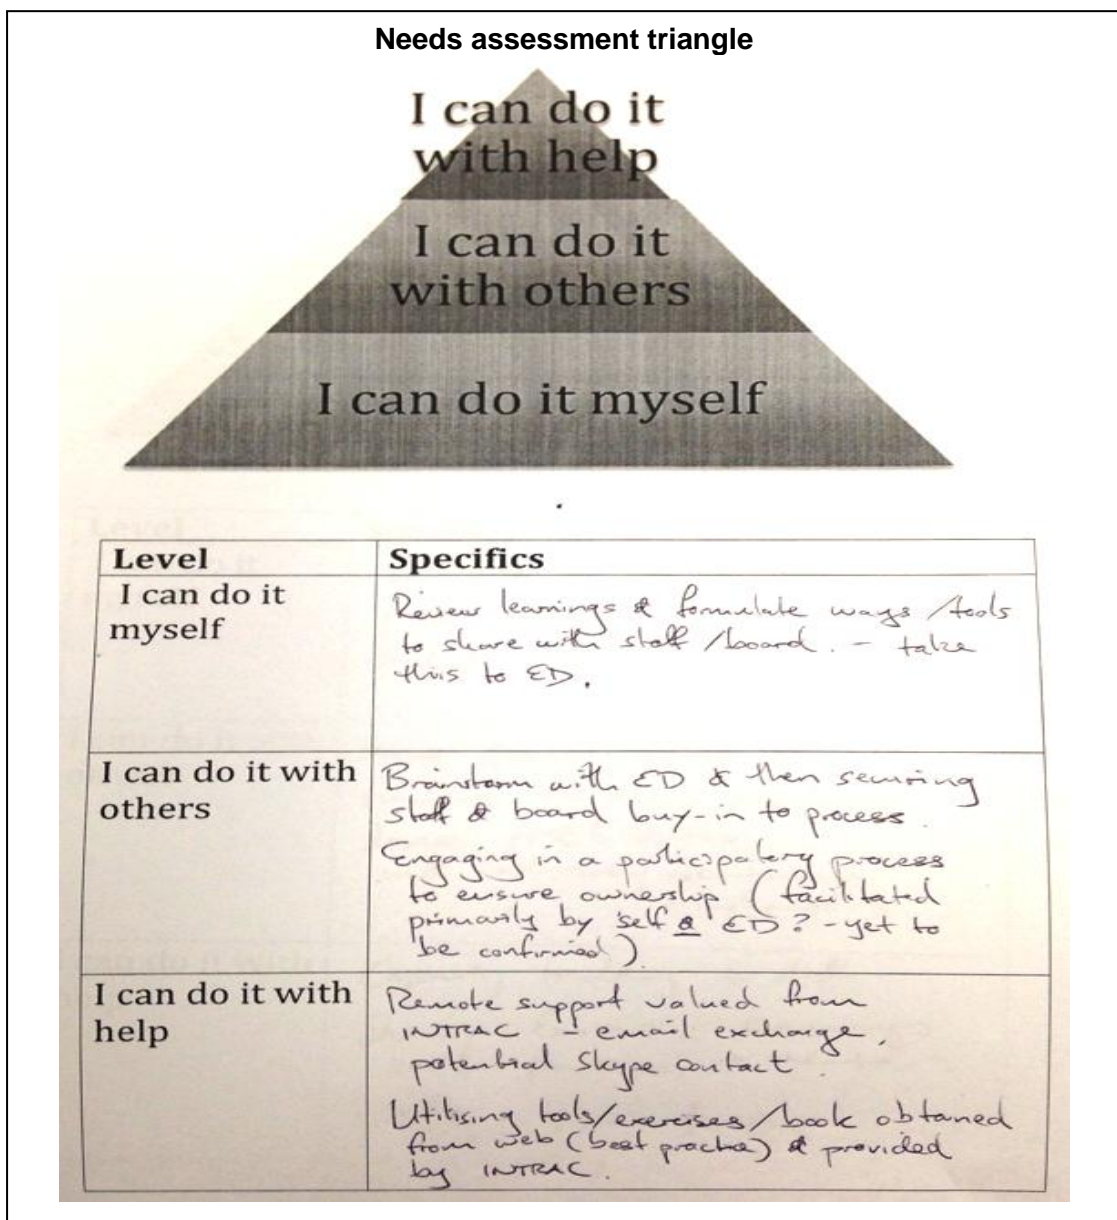 Needs assessment triangle
I can do it
with help
I can do it
with others
I can do it myself
Level
Specifics
I can do it
myself
Review learnings & formulate ways/tools
to share with staff/board. - take
this to ED.
I can do it with
others
Brainstorm with ED & then securing
staff & board buy-in to process.
Engaging in a participatory process
to ensure ownership (facilitated
primarily by self & ED? - yet to
be confirmed)
I can do it with
help
Remote support valued from
INTRAC - email exchange,
potential Skype contact.
Utilising tools/exercises/book obtained
from web (best practice) & provided
by INTRAC.